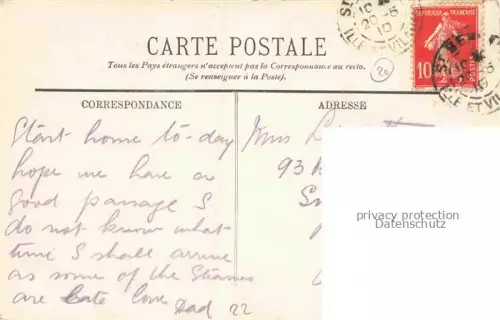 ST SE
10
20-5
10
ILLE ET VILAINE
REPUBLIQUE FRANCAISE
10
POSTES
CARTE POSTALE
Tous les Pays étrangers n'acceptent pas la Correspondance au recto.
(Se renseigner à la Poste).
20
CORRESPONDANCE
ADRESSE
Start home to-day
hope we have a
good passage I
do not know what
time I shall arrive
as some of the Steamers
are Late love
Dad 22
Mrs
93
privacy protection
Datenschutz